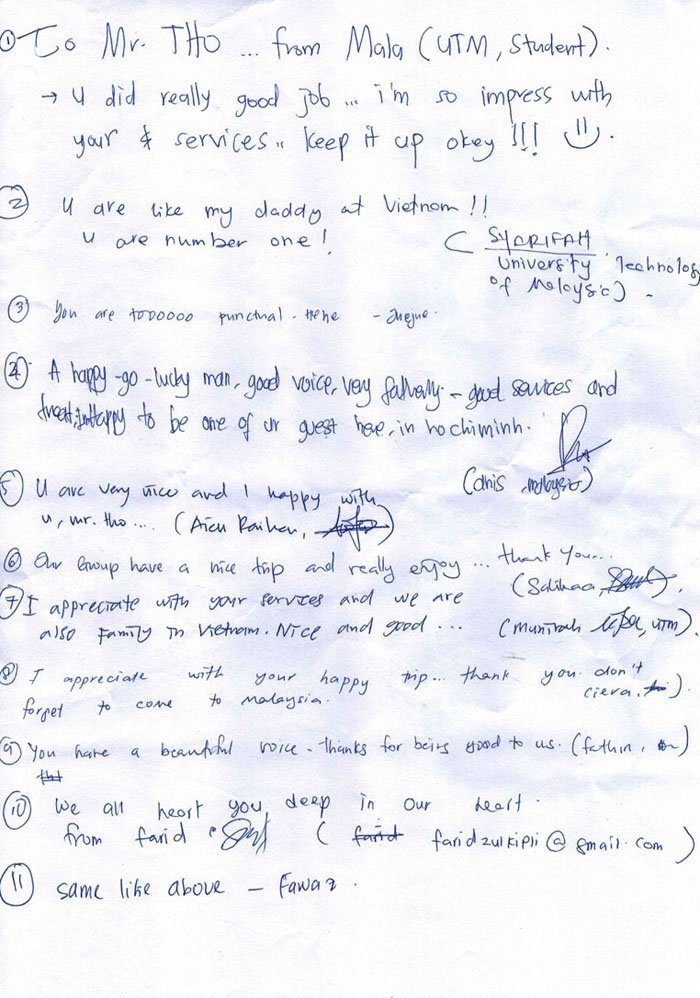 ① To Mr. THO ... from Mala (UTM, Student).
→ U did really good job ... i'm so impress with
your & services.. keep it up okey !!!
② U are like my daddy at Vietnam !!
U are number one!
( SYARIFAH
University Technology
of Malaysia)
③ You are tooooooo punctual. Hehe -
④ A happy-go-lucky man, good voice, very - good services and
Happy to be one of ur guest here, in hochiminh.
(anis, malaysia)
⑤ U are very nice and I happy with
u, mr. tho ... (Aien Raihan, )
⑥ Our Group have a nice trip and really enjoy ... thank you...
(Salihaa, ).
⑦ I appreciate with your services and we are
also Family in Vietnam. Nice and good ... (Munirah , UTM).
⑧ I appreciate with your happy trip... thank you. don't
forget to come to Malaysia. ciera, ).
⑨ You have a beautiful voice. thanks for being good to us. (fathin, )
⑩ We all heart you deep in our heart.
from farid ( farid faridzulkipli@gmail.com )
⑪ same like above - Fawaz.